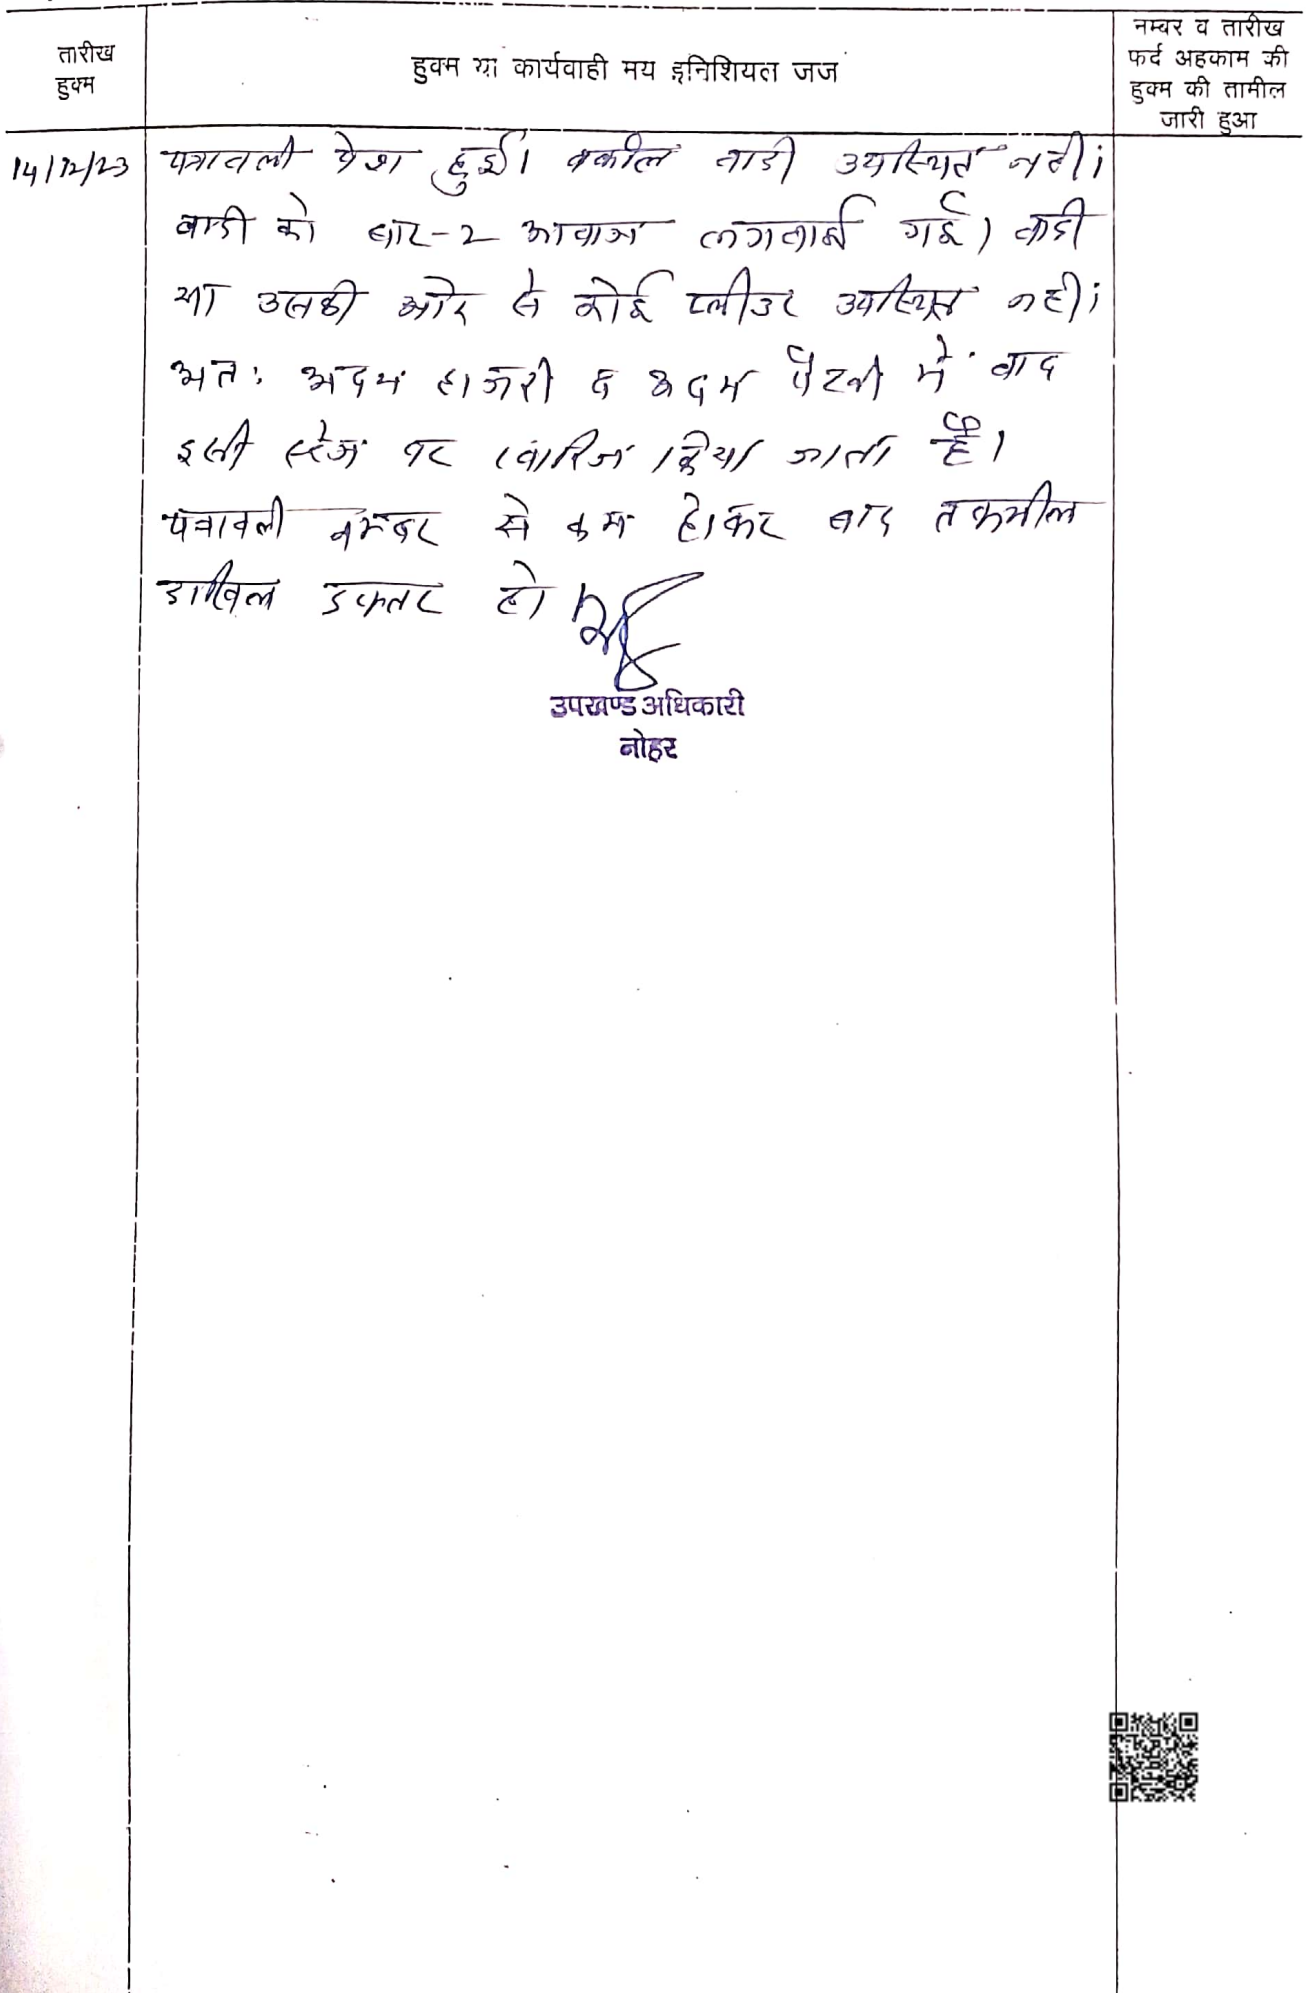 तारीख
हुक्म
हुक्म या कार्यवाही मय इनिशियल जज
नम्बर व तारीख
फर्द अहकाम की
हुक्म की तामील
जारी हुआ
14/12/23
पत्रावली पेश हुई। वकील वादी उपस्थित नहीं।
वादी को बार-2 आवाज लगवाई गई। वादी
या उसकी ओर से कोई प्लीडर उपस्थित नहीं।
अतः अदम हाजरी व अदम पैरवी में वाद
इसी स्टेज पर खारिज किया जाता है।
पत्रावली नम्बर से कम होकर बाद तकमील
दाखिल दफ्तर हो
उपखण्ड अधिकारी
नोहर